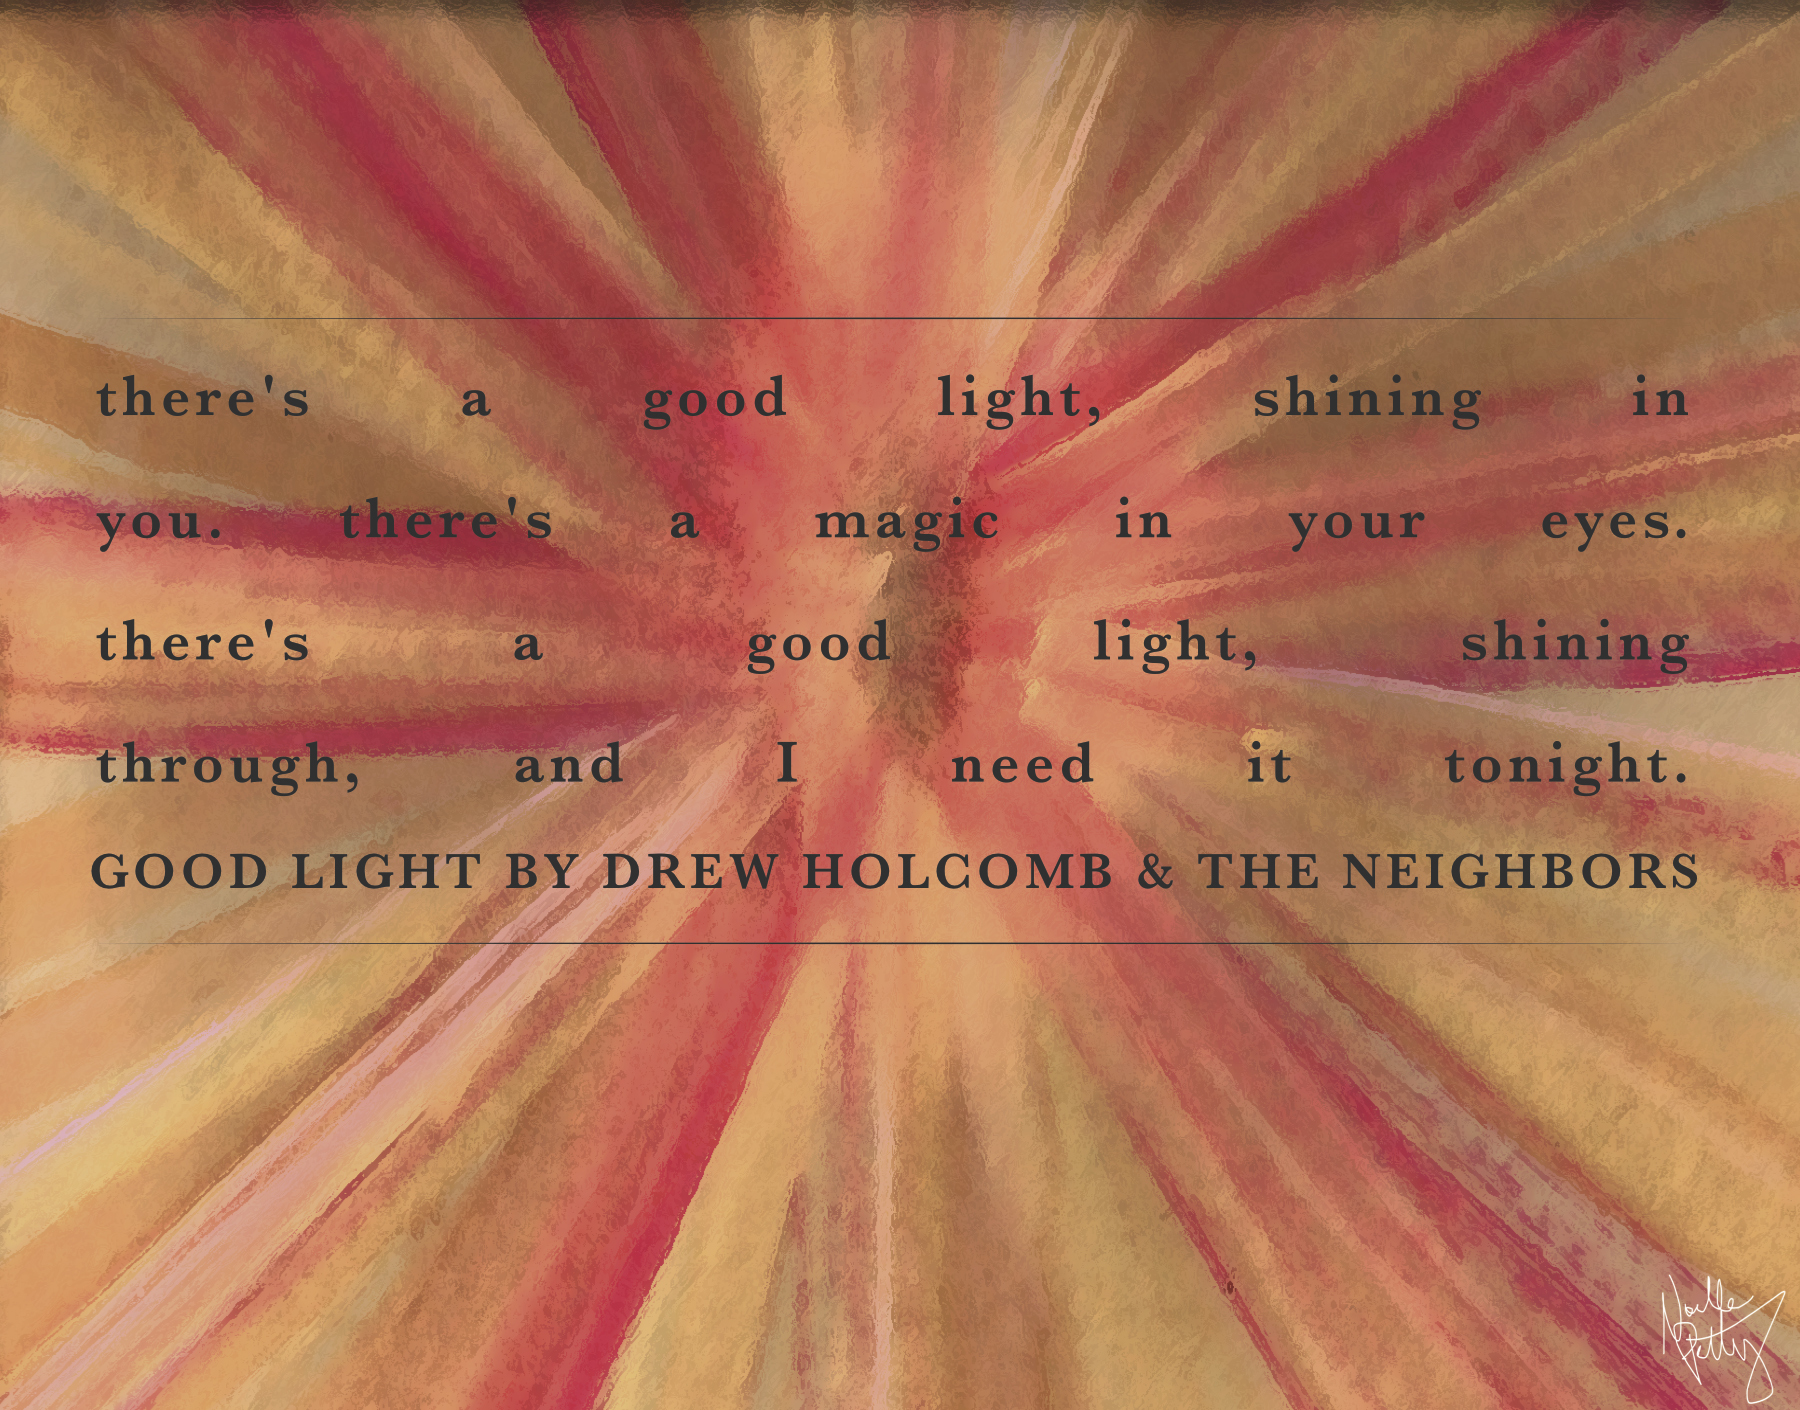 there's a good light, shining in
you. there's a magic in your eyes.
there's a good light, shining
through, and I need it tonight.
GOOD LIGHT BY DREW HOLCOMB & THE NEIGHBORS
Noelle
Petty